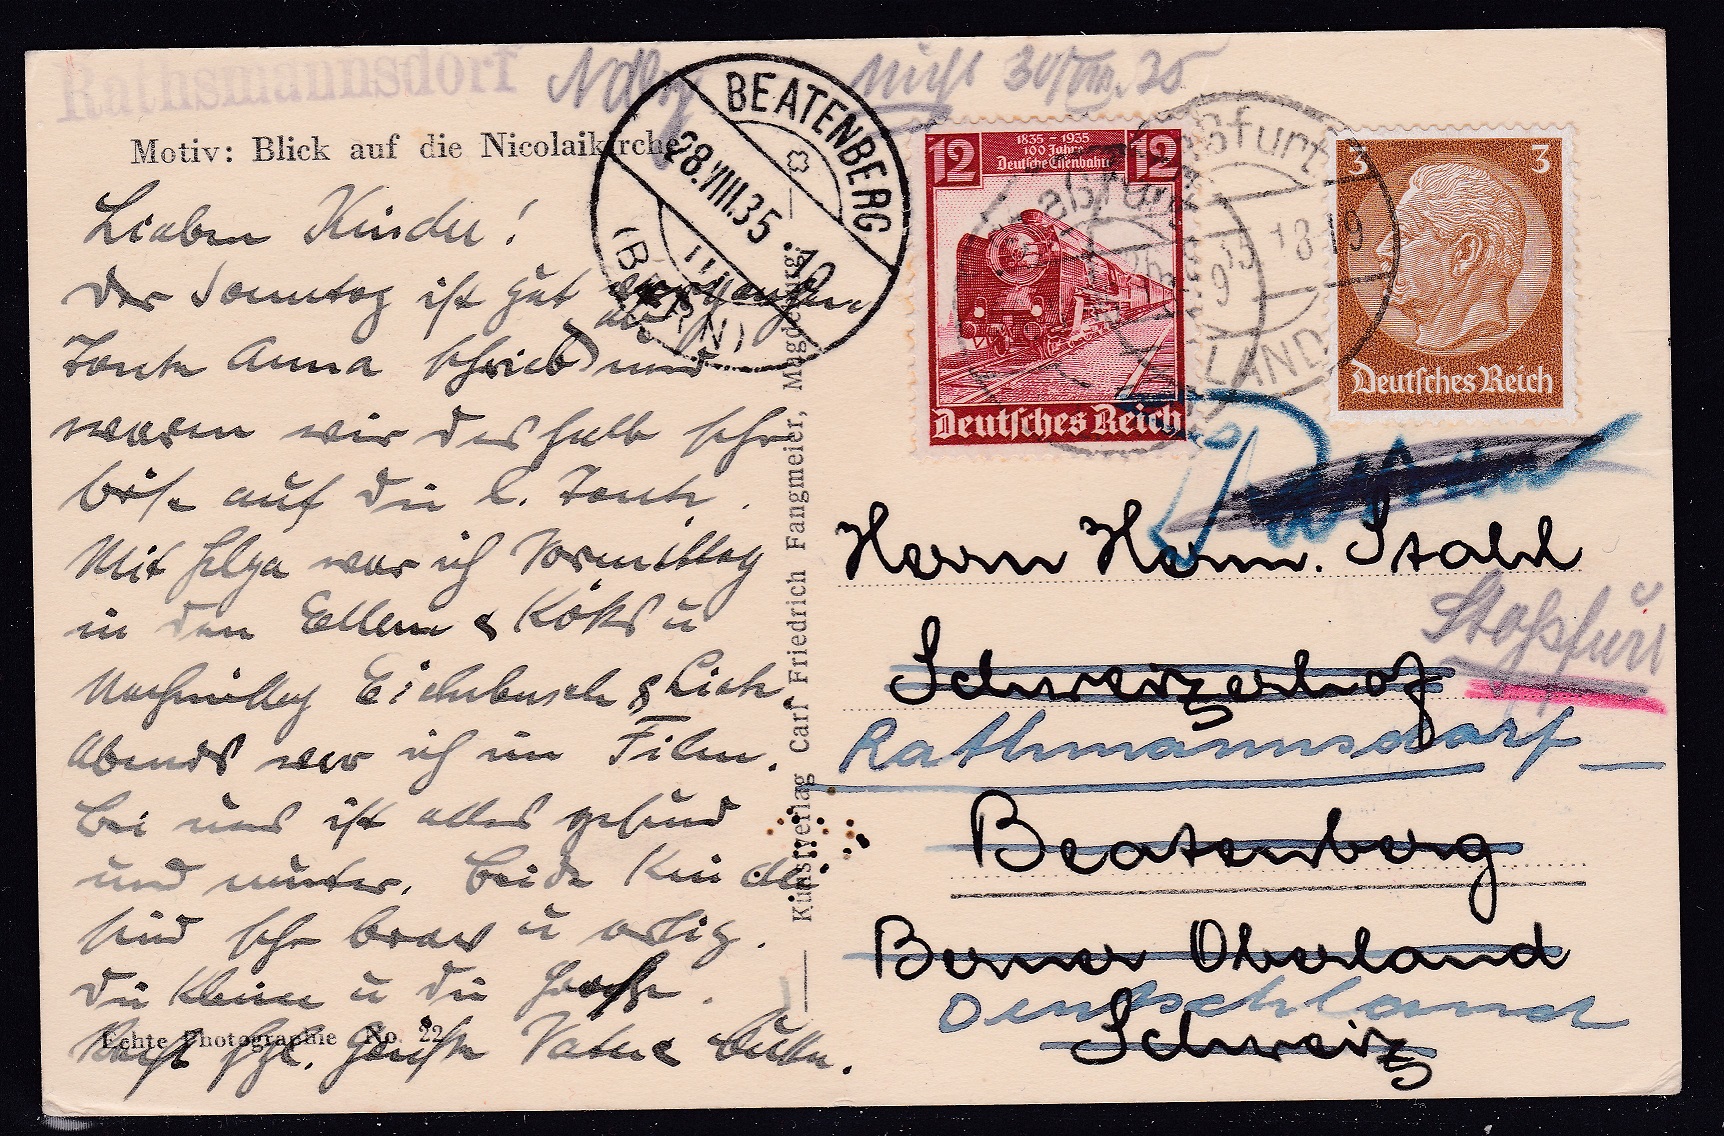 Rathsmannsdorf
30/VIII.35
Motiv: Blick auf die Nicolaikirche
BEATENBERG
28.VIII.35
(BERN)
12 1835-1935 12
100 Jahre
Deutsche Eisenbahn
Deutsches Reich
3 3
Deutsches Reich
18-19
LAND
Lieben Kinder!
Der Sonntag ist gut
Tante Anna schrieb und
waren wir deshalb sehr
böse auf die l. Tante.
Mit Helga war ich Vormittag
in den Ellern & Köks u
Nachmittag Eichenbusch &
Abends war ich im Film.
Bei uns ist alles gesund
und munter. Beide Kinder
sind sehr brav u artig.
Die Kleine u die Große.
Grüße Vater
Echte Photographie No. 22
Kunstverlag Carl Friedrich Fangmeier, Magdeburg.
Herrn Herm. Stahl
Staßfurt
Schweizerhof
Rathmannsdorf
Beatenberg
Berner Oberland
Deutschland
Schweiz